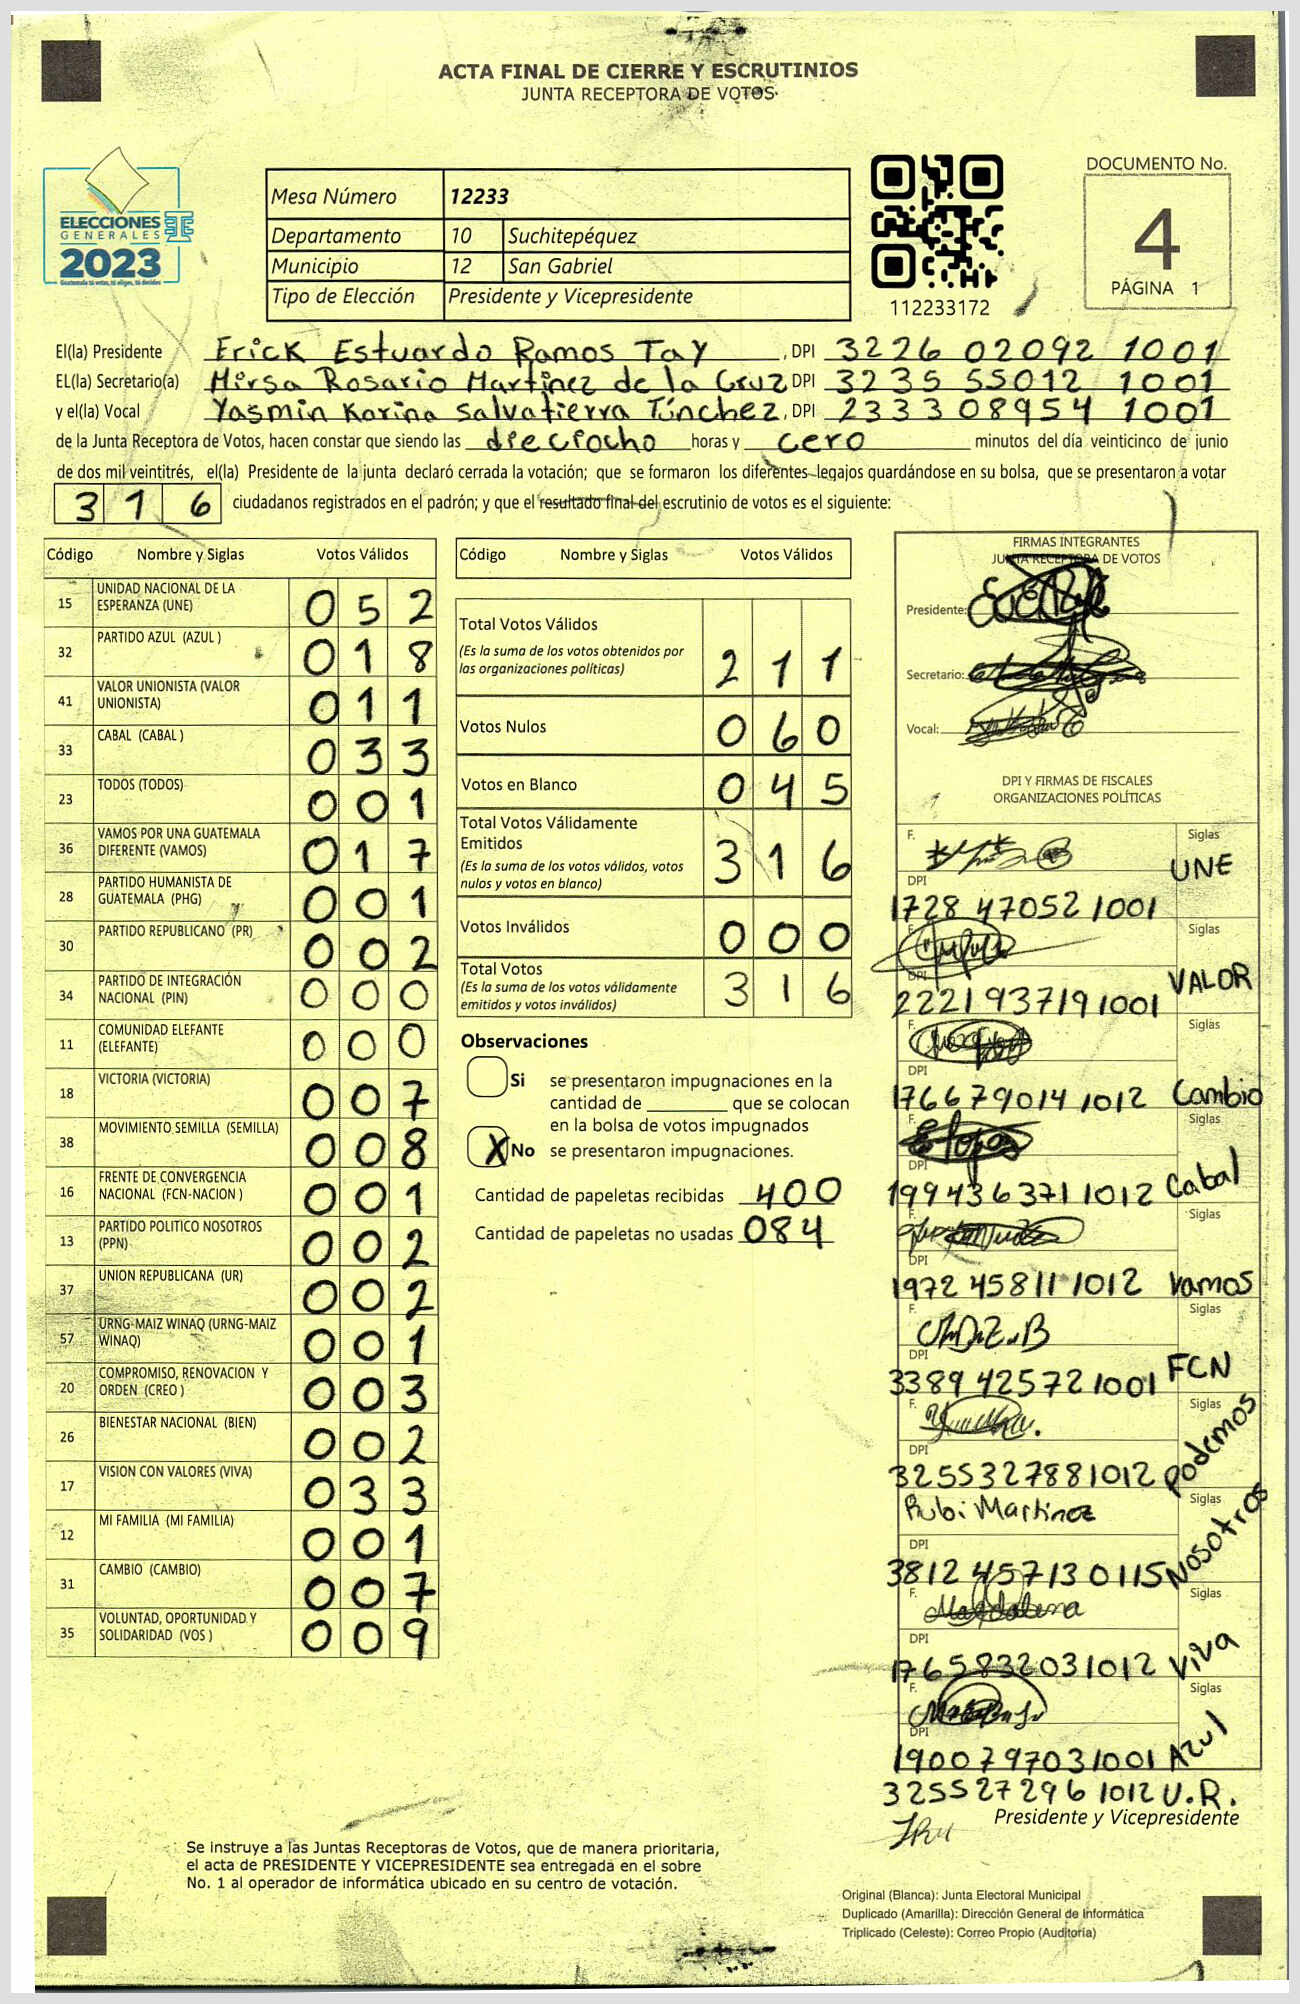 ACTA FINAL DE CIERRE Y ESCRUTINIOS
JUNTA RECEPTORA DE VOTOS
ELECCIONES
GENERALES
2023
Guatemala tú votas, tú eliges, tú decides
Mesa Número 12233
Departamento 10 Suchitepéquez
Municipio 12 San Gabriel
Tipo de Elección Presidente y Vicepresidente
112233172
DOCUMENTO No.
4
PÁGINA 1
El(la) Presidente Erick Estuardo Ramos Tay, DPI 3226 02092 1001
EL(la) Secretario(a) Mirsa Rosario Martinez de la Cruz DPI 3235 55012 1001
y el(la) Vocal Yasmin Karina Salvatierra Túnchez, DPI 2333 08954 1001
de la Junta Receptora de Votos, hacen constar que siendo las dieciocho horas y cero minutos del día veinticinco de junio
de dos mil veintitrés, el(la) Presidente de la junta declaró cerrada la votación; que se formaron los diferentes legajos guardándose en su bolsa, que se presentaron a votar
316 ciudadanos registrados en el padrón; y que el resultado final del escrutinio de votos es el siguiente:
Código Nombre y Siglas Votos Válidos
15 UNIDAD NACIONAL DE LA ESPERANZA (UNE) 052
32 PARTIDO AZUL (AZUL ) 018
41 VALOR UNIONISTA (VALOR UNIONISTA) 011
33 CABAL (CABAL ) 033
23 TODOS (TODOS) 001
36 VAMOS POR UNA GUATEMALA DIFERENTE (VAMOS) 017
28 PARTIDO HUMANISTA DE GUATEMALA (PHG) 001
30 PARTIDO REPUBLICANO (PR) 002
34 PARTIDO DE INTEGRACIÓN NACIONAL (PIN) 000
11 COMUNIDAD ELEFANTE (ELEFANTE) 000
18 VICTORIA (VICTORIA) 007
38 MOVIMIENTO SEMILLA (SEMILLA) 008
16 FRENTE DE CONVERGENCIA NACIONAL (FCN-NACION ) 001
13 PARTIDO POLITICO NOSOTROS (PPN) 002
37 UNION REPUBLICANA (UR) 002
57 URNG-MAIZ WINAQ (URNG-MAIZ WINAQ) 001
20 COMPROMISO, RENOVACION Y ORDEN (CREO ) 003
26 BIENESTAR NACIONAL (BIEN) 002
17 VISION CON VALORES (VIVA) 033
12 MI FAMILIA (MI FAMILIA) 001
31 CAMBIO (CAMBIO) 007
35 VOLUNTAD, OPORTUNIDAD Y SOLIDARIDAD (VOS ) 009
Código Nombre y Siglas Votos Válidos
Total Votos Válidos 211
(Es la suma de los votos obtenidos por
las organizaciones políticas)
Votos Nulos 060
Votos en Blanco 045
Total Votos Válidamente
Emitidos 316
(Es la suma de los votos válidos, votos
nulos y votos en blanco)
Votos Inválidos 000
Total Votos 316
(Es la suma de los votos válidamente
emitidos y votos inválidos)
Observaciones
Si se presentaron impugnaciones en la
cantidad de ________ que se colocan
en la bolsa de votos impugnados
X No se presentaron impugnaciones.
Cantidad de papeletas recibidas 400
Cantidad de papeletas no usadas 084
FIRMAS INTEGRANTES
JUNTA RECEPTORA DE VOTOS
Presidente:
Secretario:
Vocal:
DPI Y FIRMAS DE FISCALES
ORGANIZACIONES POLÍTICAS
F. Siglas
UNE
DPI
1728 47052 1001
F. Siglas
VALOR
DPI
2221 93719 1001
F. Siglas
DPI
1766 79014 1012 Cambio
F. Siglas
DPI
1994 36371 1012 Cabal
F. Siglas
DPI
1972 45811 1012 Vamos
F. Siglas
DPI
3389 42572 1001 FCN
F. Siglas
DPI
3255 32788 1012 Podemos
Rubi Martinez Siglas
DPI
3812 45713 0115 Nosotros
F. Magdalena Siglas
DPI
1765 83203 1012 Viva
F. Siglas
DPI
1900 79703 1001 Azul
3255 27296 1012 U.R.
Presidente y Vicepresidente
Se instruye a las Juntas Receptoras de Votos, que de manera prioritaria,
el acta de PRESIDENTE Y VICEPRESIDENTE sea entregada en el sobre
No. 1 al operador de informática ubicado en su centro de votación.
Original (Blanca): Junta Electoral Municipal
Duplicado (Amarilla): Dirección General de Informática
Triplicado (Celeste): Correo Propio (Auditoría)